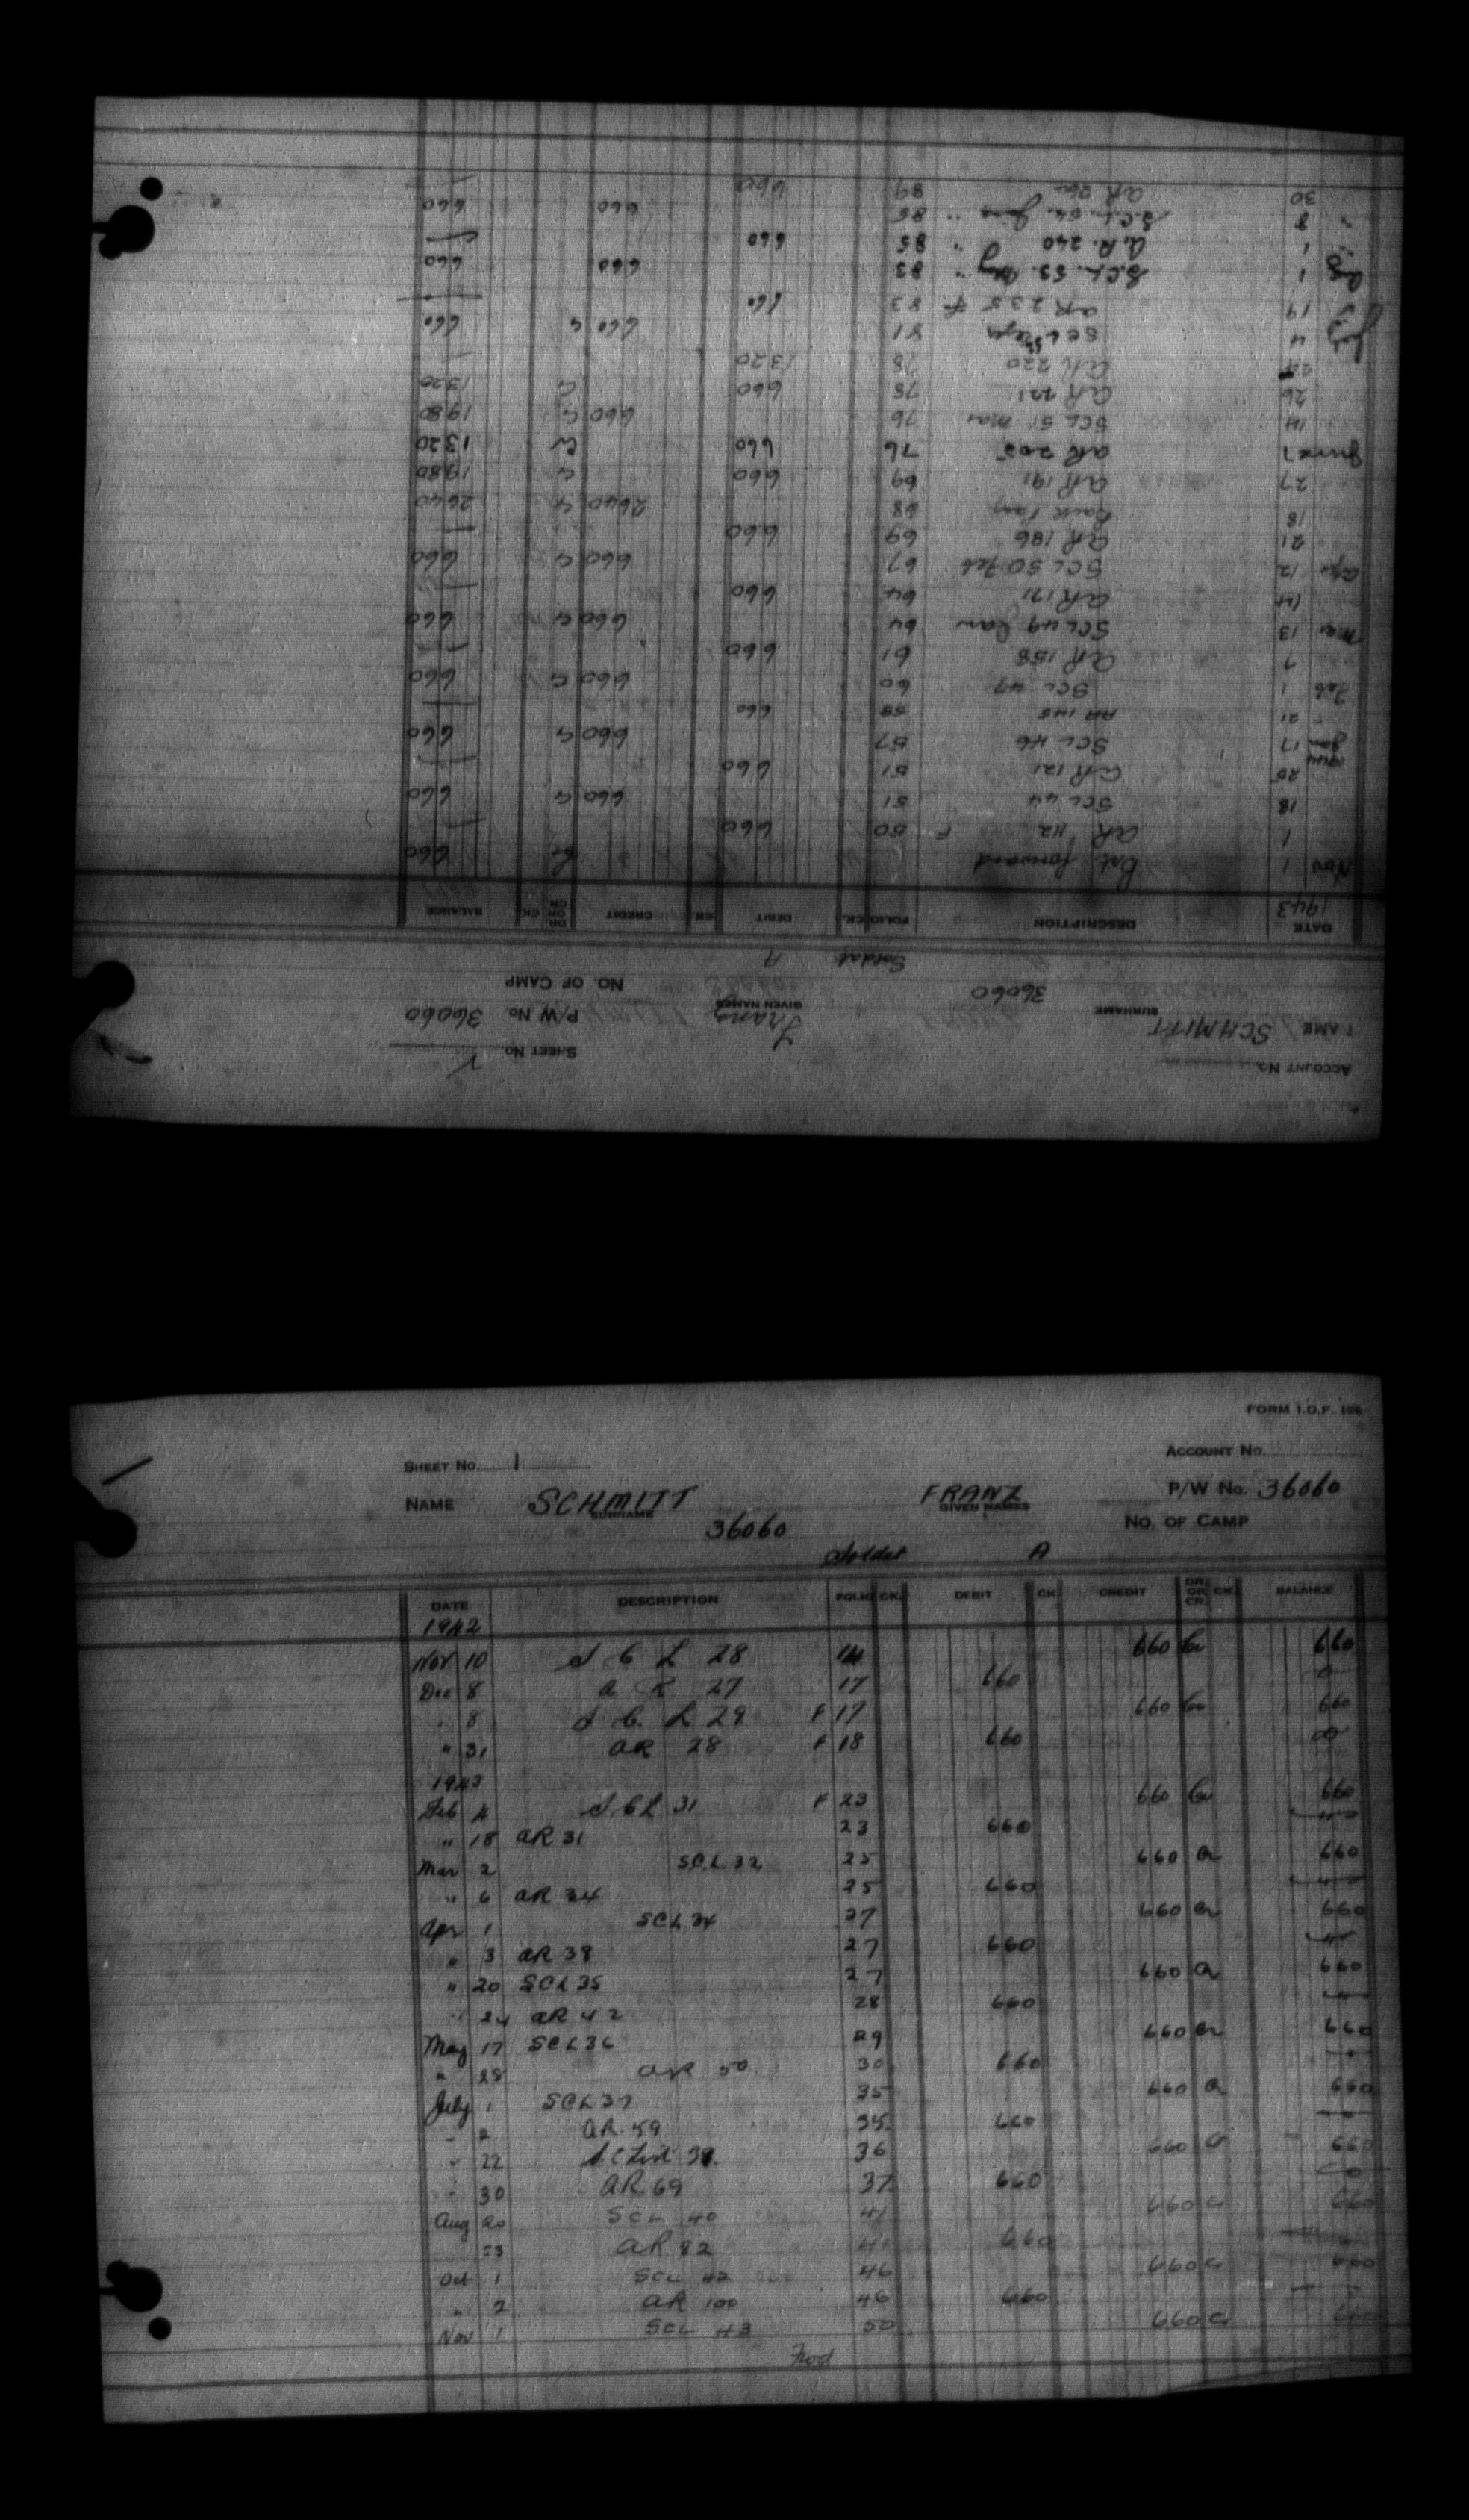 FORM I.O.F. 108
SHEET No. 1 ACCOUNT No.
NAME SCHMITT FRANZ P/W No. 36060
SURNAME GIVEN NAMES
36060 NO. OF CAMP
Soldat A
DATE DESCRIPTION FOLIO CK. DEBIT CK. CREDIT DR. OR CR. CK. BALANCE
1942
Nov 10 S C L 28 14 660 Cr 660
Dec 8 A R 27 17 660
" 8 S C L 29 F 17 660 Cr 660
" 31 AR 28 F 18 660
1943
Feb 4 S C L 31 F 23 660 Cr 660
" 18 AR 31 23 660
Mar 2 SCL 32 25 660 Cr 660
" 6 AR 34 25 660
Apr 1 SCL 34 27 660 Cr 660
" 3 AR 38 27 660
" 20 SCL 35 27 660 Cr 660
" 24 AR 42 28 660
May 17 SCL 36 29 660 Cr 660
" 28 AR 50 30 660
July 1 SCL 37 35 660 Cr 660
" 2 AR 59 35 660
" 22 S.C List 39 36 660 Cr 660
" 30 AR 69 37 660
Aug 20 SCL 40 41 660 Cr 660
23 AR 82 41 660
Oct 1 SCL 42 46 660 Cr 660
" 2 AR 100 46 660
Nov 1 SCL 43 50 660 Cr 660
Fwd
ACCOUNT No. SHEET No.
NAME SCHMITT Franz P/W No. 36060
SURNAME GIVEN NAMES
36060 NO. OF CAMP
Soldat A
DATE DESCRIPTION FOLIO CK. DEBIT CK. CREDIT DR. OR CR. CK. BALANCE
1943
Nov 1 Bal forward Cr 660
1 AR 112 F 50 660
18 SCL 44 51 660 Cr 660
25 AR 121 51 660
1944
Jan 17 SCL 46 57 660 Cr 660
" 21 AR 145 58 660
Feb 1 SCL 47 60 660 Cr 660
7 AR 158 61 660
Mar 13 SCL 49 Jan 64 660 Cr 660
14 AR 171 64 660
Apr 12 SCL 50 Feb 67 660 Cr 660
21 AR 186 69 660
18 Back Pay 68 2640 Cr 2640
27 AR 191 69 660 Cr 1980
June 7 AR 205 76 660 Cr 1320
14 SCL 51 Mar 76 660 Cr 1980
26 AR 221 78 660 Cr 1320
AR 220 78 1320
July 4 SCL 81 660 Cr 660
19 AR 235 F 83 660
Aug 1 S.C.L. 53. May " 83 660 660
1 A.R. 240 " 85 660
" 8 S.C.L. 54. June " 86 660 660
30 AR 89 660